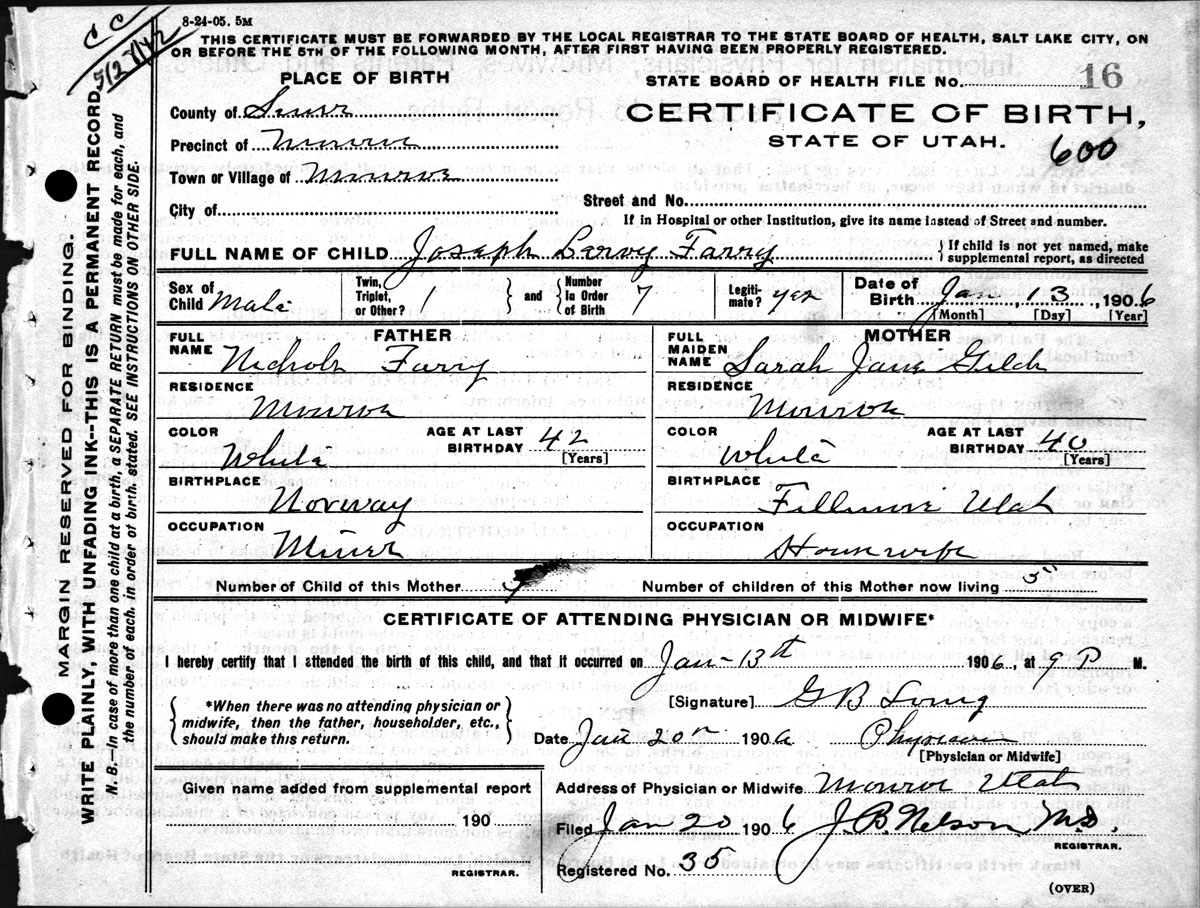 8-24-05. 5M
C C
THIS CERTIFICATE MUST BE FORWARDED BY THE LOCAL REGISTRAR TO THE STATE BOARD OF HEALTH, SALT LAKE CITY, ON
OR BEFORE THE 5TH OF THE FOLLOWING MONTH, AFTER FIRST HAVING BEEN PROPERLY REGISTERED.
PLACE OF BIRTH
STATE BOARD OF HEALTH FILE No. 16
County of
CERTIFICATE OF BIRTH,
Precinct of Monroe
STATE OF UTAH.
600
Town or Village of Monroe
City of
Street and No.
If in Hospital or other Institution, give its name instead of Street and number.
FULL NAME OF CHILD Joseph Farry
{If child is not yet named, make
supplemental report, as directed
Sex of Child Male
Twin, Triplet, or Other? 1
and
Number In Order of Birth 7
Legitimate? yes
Date of Birth Jan, 13, 1906
[Month] [Day] [Year]
FATHER
FULL NAME
Farry
MOTHER
FULL MAIDEN NAME
Sarah Jane
RESIDENCE
Monroe
RESIDENCE
Monroe
COLOR
White
AGE AT LAST BIRTHDAY 42
[Years]
COLOR
White
AGE AT LAST BIRTHDAY 40
[Years]
BIRTHPLACE
Norway
BIRTHPLACE
Fillmore Utah
OCCUPATION
Miner
OCCUPATION
Housewife
Number of Child of this Mother
Number of children of this Mother now living
CERTIFICATE OF ATTENDING PHYSICIAN OR MIDWIFE*
I hereby certify that I attended the birth of this child, and that it occurred on Jan-13th 1906, at 9 P M.
{*When there was no attending physician or
midwife, then the father, householder, etc.,
should make this return.}
[Signature] G B
Date Jan 20th 1906 Physician
[Physician or Midwife]
Given name added from supplemental report
190
REGISTRAR.
Address of Physician or Midwife Monroe Utah
Filed Jan 20 1906 J. B. Nelson, M.D.
REGISTRAR.
Registered No. 35
(OVER)
MARGIN RESERVED FOR BINDING.
WRITE PLAINLY, WITH UNFADING INK--THIS IS A PERMANENT RECORD.
N. B.--In case of more than one child at a birth, a SEPARATE RETURN must be made for each, and
the number of each, in order of birth, stated. SEE INSTRUCTIONS ON OTHER SIDE.